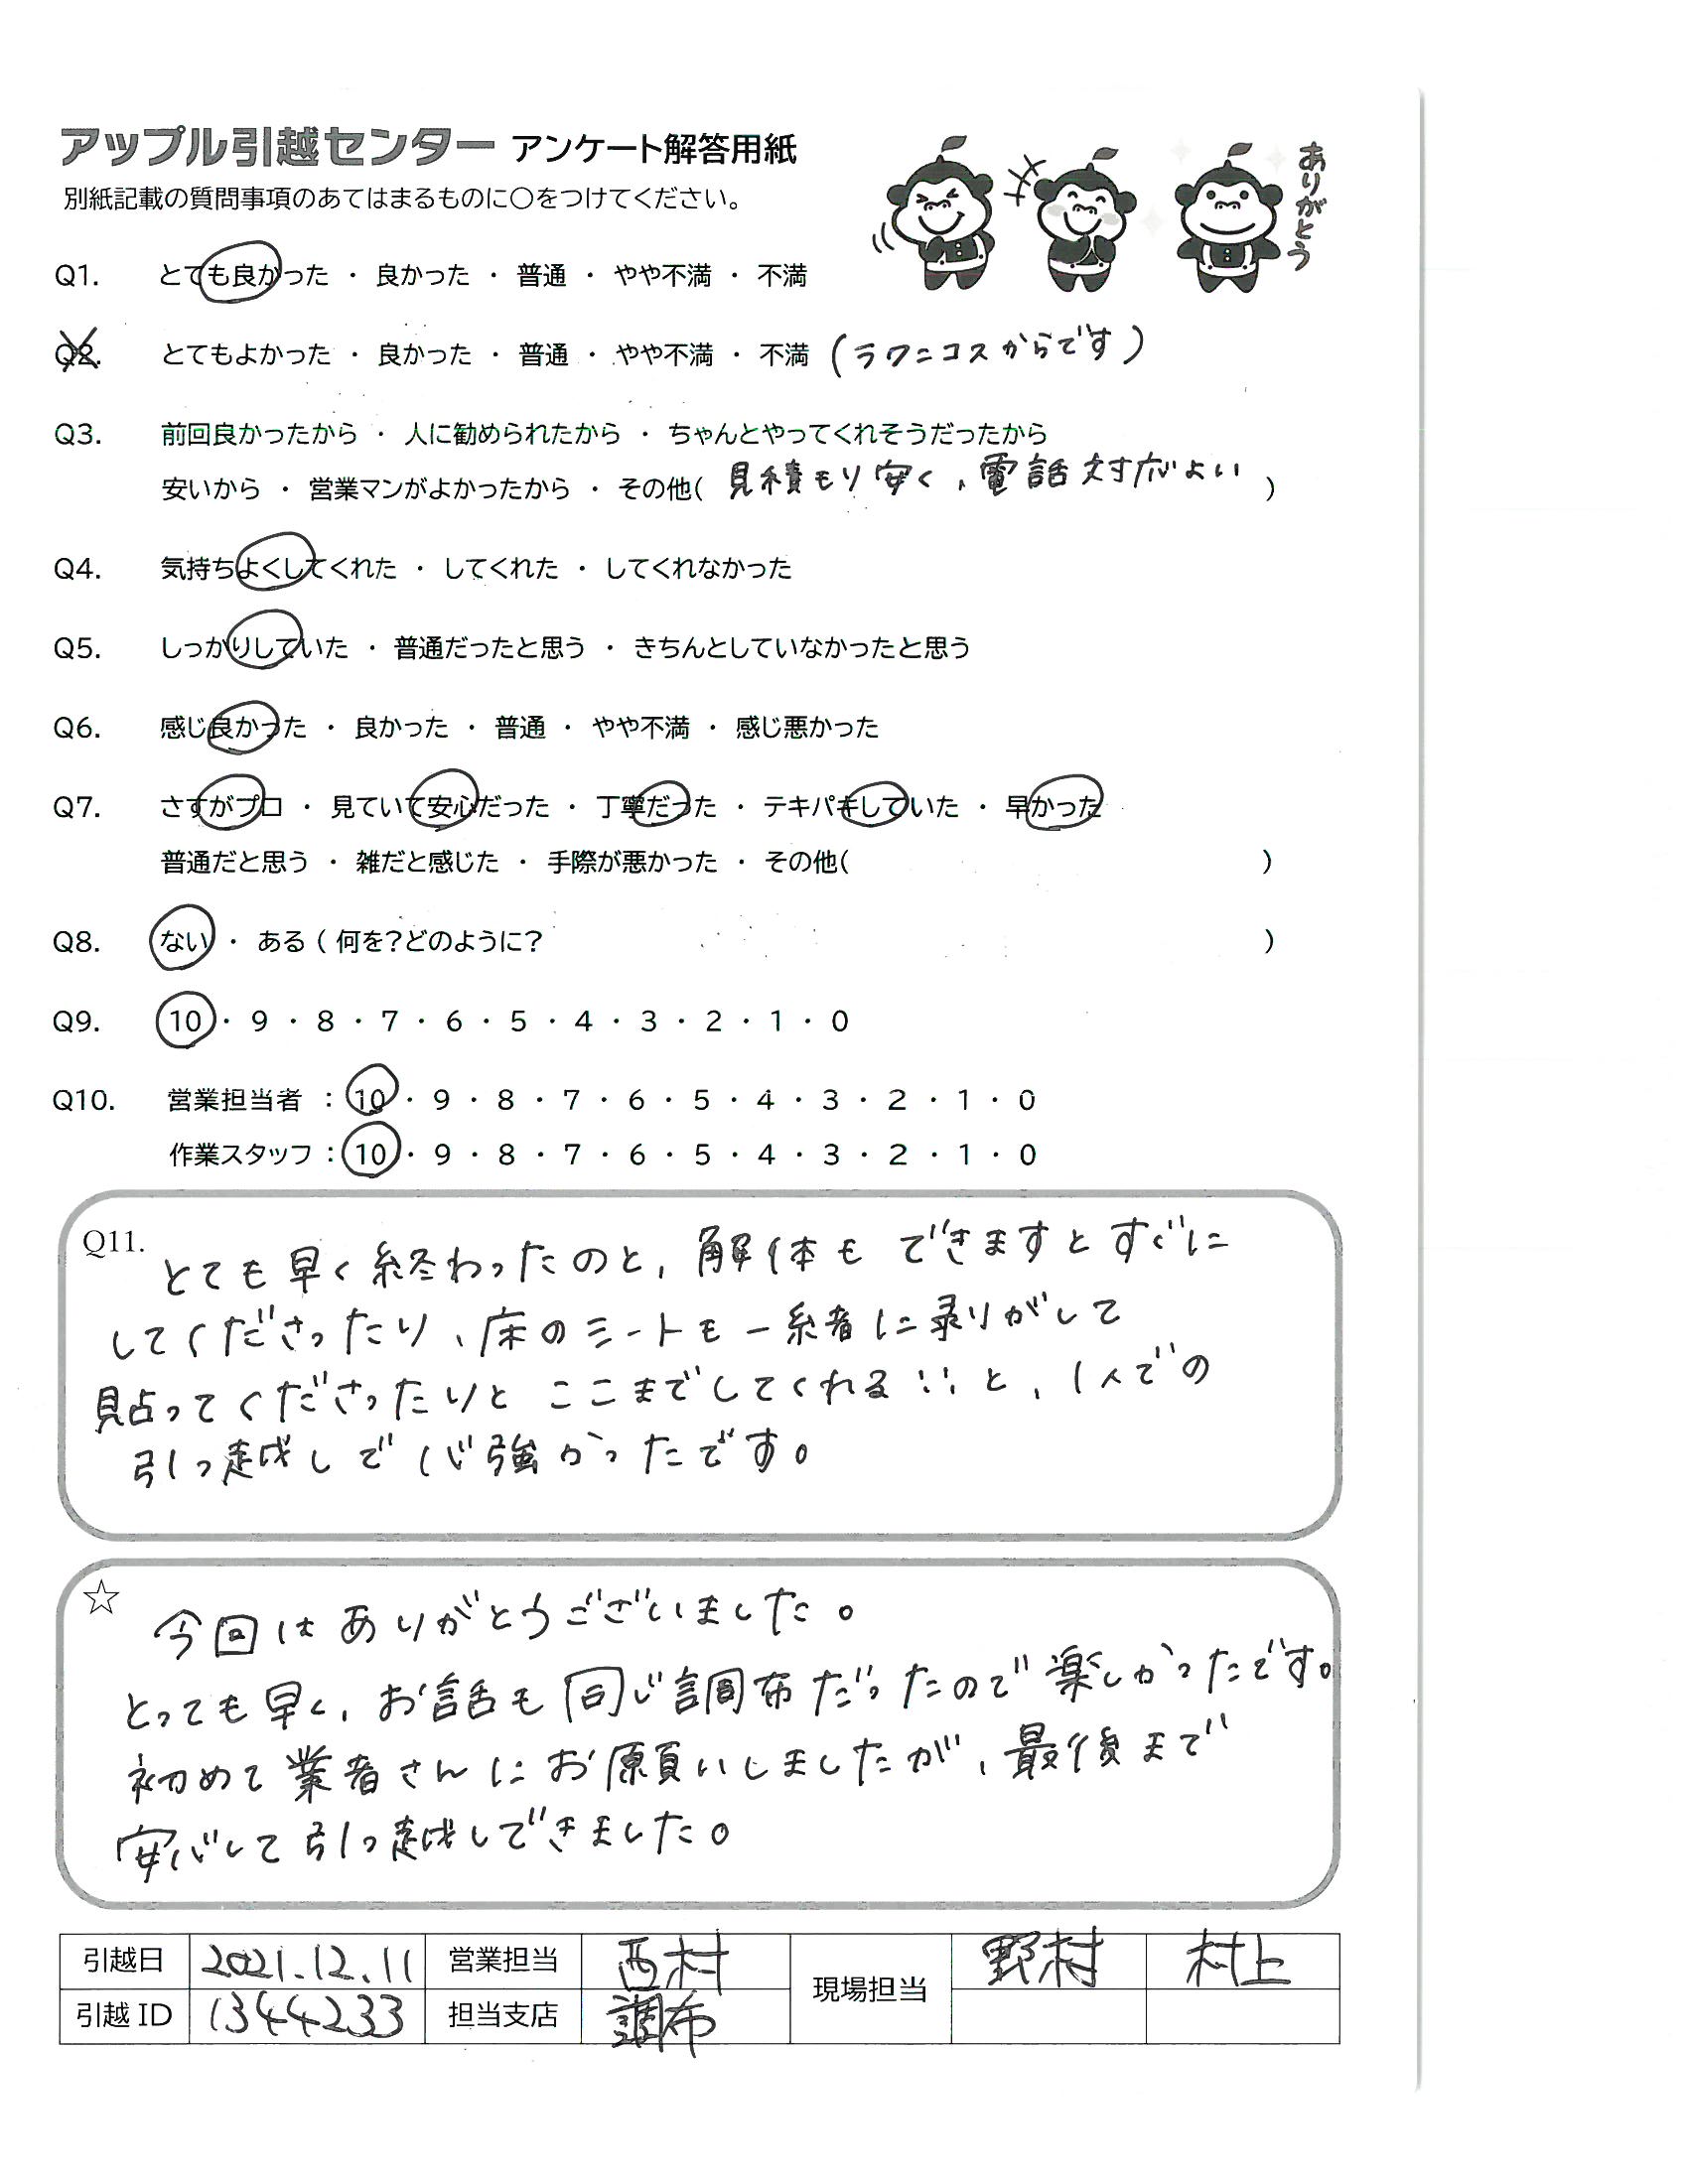 アップル引越センター アンケート解答用紙
ありがとう
別紙記載の質問事項のあてはまるものに〇をつけてください。
Q1. とても良かった ・ 良かった ・ 普通 ・ やや不満 ・ 不満
Q2. とてもよかった ・ 良かった ・ 普通 ・ やや不満 ・ 不満 (ラクニコスからです)
Q3. 前回良かったから ・ 人に勧められたから ・ ちゃんとやってくれそうだったから
安いから ・ 営業マンがよかったから ・ その他( 見積もり安く、電話対応がよい )
Q4. 気持ちよくしてくれた ・ してくれた ・ してくれなかった
Q5. しっかりしていた ・ 普通だったと思う ・ きちんとしていなかったと思う
Q6. 感じ良かった ・ 良かった ・ 普通 ・ やや不満 ・ 感じ悪かった
Q7. さすがプロ ・ 見ていて安心だった ・ 丁寧だった ・ テキパキしていた ・ 早かった
普通だと思う ・ 雑だと感じた ・ 手際が悪かった ・ その他( )
Q8. ない ・ ある ( 何を?どのように? )
Q9. 10 ・ 9 ・ 8 ・ 7 ・ 6 ・ 5 ・ 4 ・ 3 ・ 2 ・ 1 ・ 0
Q10. 営業担当者 : 10 ・ 9 ・ 8 ・ 7 ・ 6 ・ 5 ・ 4 ・ 3 ・ 2 ・ 1 ・ 0
作業スタッフ : 10 ・ 9 ・ 8 ・ 7 ・ 6 ・ 5 ・ 4 ・ 3 ・ 2 ・ 1 ・ 0
Q11. とても早く終わったのと、解体もできますとすぐに
してくださったり、床のシートも一緒に剥がして
貼ってくださったりと ここまでしてくれる!! と、1人での
引っ越しで心強かったです。
☆ 今回はありがとうございました。
とっても早く、お話も同じ調布だったので楽しかったです。
初めて業者さんにお願いしましたが、最後まで
安心して引っ越しできました。
引越日 2021.12.11 営業担当 西村 現場担当 野村 村上
引越 ID 1344233 担当支店 調布